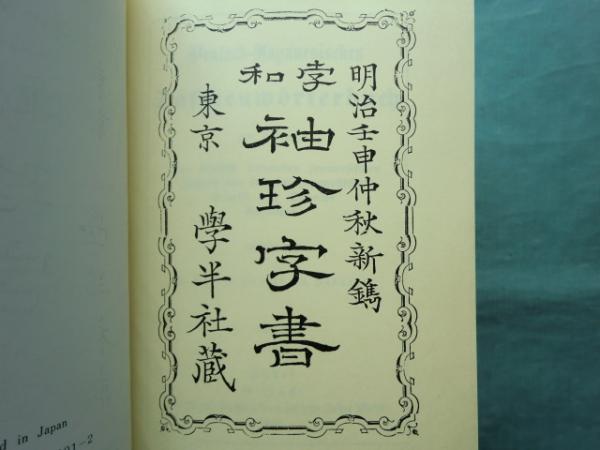 明治壬申仲秋新鐫
孛和
袖珍字書
東京 學半社蔵
d in Japan
01-2